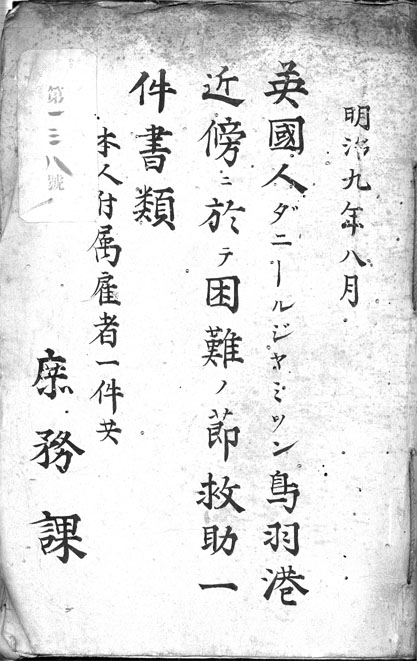 明治九年八月
英國人ダニールジヤミソン鳥羽港
近傍ニ於テ困難ノ節救助一
件書類
本人付属雇者一件共
庶務課
第一三八號